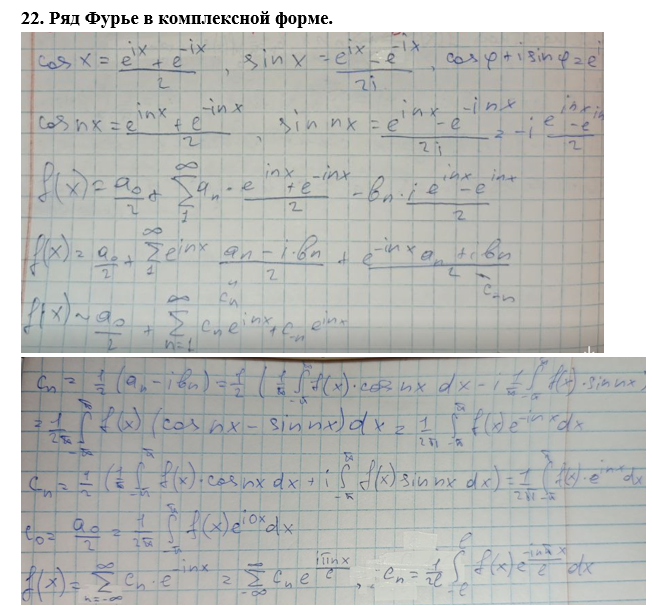 22. Ряд Фурье в комплексной форме.
cos x = (e^{ix} + e^{-ix})/2, sin x = (e^{ix} - e^{-ix})/2i, cos φ + i sin φ = e^{i
cos nx = (e^{inx} + e^{-inx})/2, sin nx = (e^{inx} - e^{-inx})/2i = -i (e^{inx} - e^{in})/2
f(x) = a₀/2 + ∑_{1}^{∞} aₙ · (e^{inx} + e^{-inx})/2 - bₙ · i (e^{inx} - e^{inx})/2
f(x) = a₀/2 + ∑_{1}^{∞} e^{inx} (aₙ - i·bₙ)/2 + (e^{-inx} aₙ + i bₙ)/2
cₙ c₋ₙ
f(x) ~ a₀/2 + ∑_{n=1}^{∞} cₙ e^{inx} + c₋ₙ e^{inx}
cₙ = 1/2 (aₙ - i bₙ) = 1/2 (1/π ∫_{-π}^{π} f(x)·cos nx dx - i 1/π ∫_{-π}^{π} f(x)·sin nx
= 1/2π ∫_{-π}^{π} f(x) (cos nx - sin nx) dx = 1/2π ∫_{-π}^{π} f(x) e^{-inx} dx
cₙ = 1/2 (1/π ∫_{-π}^{π} f(x)·cos nx dx + i ∫_{-π}^{π} f(x) sin nx dx) = 1/2π ∫_{-π}^{π} f(x)·e^{inx} dx
c₀ = a₀/2 = 1/2π ∫_{-π}^{π} f(x) e^{i0x} dx
f(x) = ∑_{n=-∞}^{∞} cₙ · e^{-inx} = ∑_{-∞}^{∞} cₙ e^{iπnx/ℓ}, cₙ = 1/2ℓ ∫_{-ℓ}^{ℓ} f(x) e^{-inπx/ℓ} dx